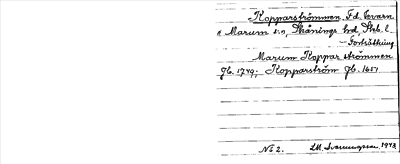 Kopparströmmen. F.d. kvarn
i Marum s:n, Skånings hd, Skb. l.
– Fortsättning
Marum Koppar strömmen
Jb. 1749; Kopparström Jb. 1651
No 2.
1943